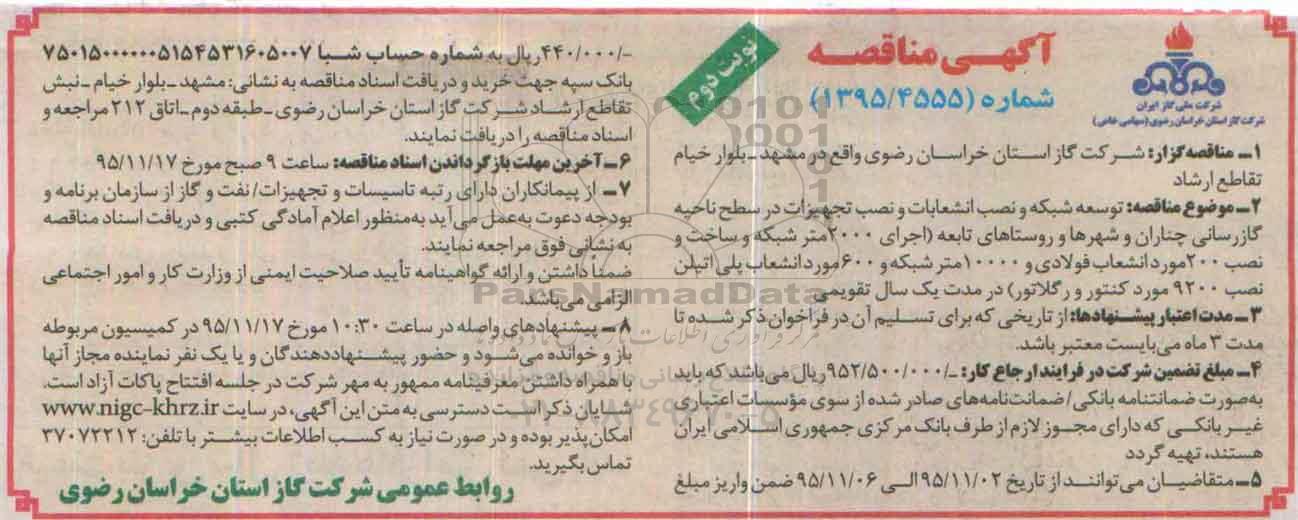 آگهی مناقصه
شماره (۱۳۹۵/۴۵۵۵)
نوبت دوم
شرکت ملی گاز ایران
شرکت گاز استان خراسان رضوی (سهامی خاص)
۱ـ مناقصه‌گزار: شرکت گاز استان خراسان رضوی واقع در مشهد ـ بلوار خیام
تقاطع ارشاد
۲ـ موضوع مناقصه: توسعه شبکه و نصب انشعابات و نصب تجهیزات در سطح ناحیه
گازرسانی چناران و شهرها و روستاهای تابعه (اجرای ۲۰۰۰متر شبکه و ساخت و
نصب ۲۰۰مورد انشعاب فولادی و ۱۰۰۰۰متر شبکه و ۶۰۰مورد انشعاب پلی اتیلن
نصب ۹۲۰۰ مورد کنتور و رگلاتور) در مدت یک سال تقویمی
۳ـ مدت اعتبار پیشنهادها: از تاریخی که برای تسلیم آن در فراخوان ذکر شده تا
مدت ۳ ماه می‌بایست معتبر باشد.
۴ـ مبلغ تضمین شرکت در فرایند ارجاع کار: ـ/۹۵۲/۵۰۰/۰۰۰ریال می‌باشد که باید
به‌صورت ضمانتنامه بانکی/ ضمانت‌نامه‌های صادر شده از سوی مؤسسات اعتباری
غیر بانکی که دارای مجوز لازم از طرف بانک مرکزی جمهوری اسلامی ایران
هستند، تهیه گردد
۵ـ متقاضیان می‌توانند از تاریخ ۹۵/۱۱/۰۲ الی ۹۵/۱۱/۰۶ ضمن واریز مبلغ
ـ/۴۴۰/۰۰۰ریال به شماره حساب شبا ۷۵۰۱۵۰۰۰۰۰۰۰۵۱۵۴۵۳۱۶۰۵۰۰۷
بانک سپه جهت خرید و دریافت اسناد مناقصه به نشانی: مشهد ـ بلوار خیام ـ نبش
تقاطع ارشاد شرکت گاز استان خراسان رضوی ـ طبقه دوم ـ اتاق ۲۱۲ مراجعه و
اسناد مناقصه را دریافت نمایند.
۶ـ آخرین مهلت بازگرداندن اسناد مناقصه: ساعت ۹ صبح مورخ ۹۵/۱۱/۱۷
۷ـ از پیمانکاران دارای رتبه تاسیسات و تجهیزات/ نفت و گاز از سازمان برنامه و
بودجه دعوت به‌عمل می‌آید به‌منظور اعلام آمادگی کتبی و دریافت اسناد مناقصه
به نشانی فوق مراجعه نمایند.
ضمناً داشتن و ارائه گواهینامه تأیید صلاحیت ایمنی از وزارت کار و امور اجتماعی
الزامی می‌باشد.
۸ـ پیشنهادهای واصله در ساعت ۱۰:۳۰ مورخ ۹۵/۱۱/۱۷ در کمیسیون مربوطه
باز و خوانده می‌شود و حضور پیشنهاددهندگان و یا یک نفر نماینده مجاز آنها
با همراه داشتن معرفینامه ممهور به مهر شرکت در جلسه افتتاح پاکات آزاد است.
شایان ذکر است دسترسی به متن این آگهی، در سایت www.nigc-khrz.ir
امکان‌پذیر بوده و در صورت نیاز به کسب اطلاعات بیشتر با تلفن: ۳۷۰۷۲۲۱۲
تماس بگیرید.
روابط عمومی شرکت گاز استان خراسان رضوی
ParsNamadData